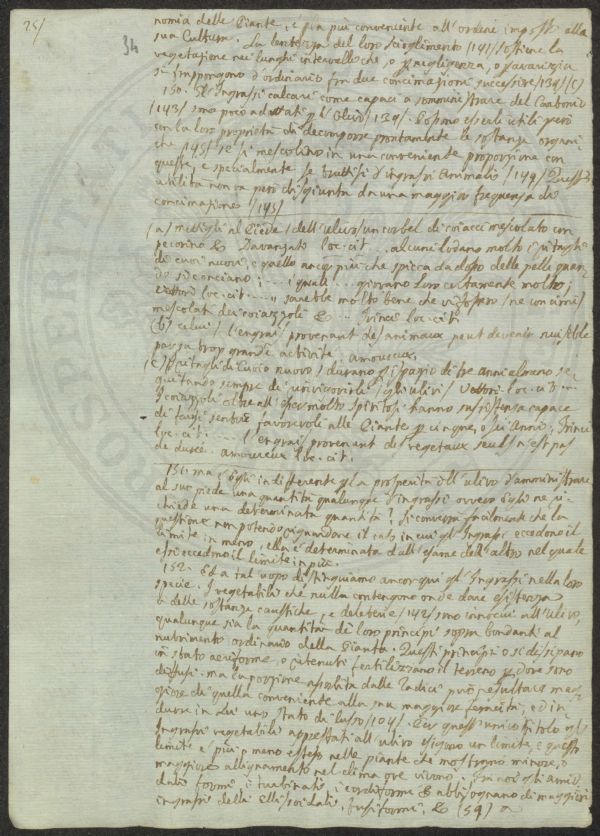 25/
34
nomia delle Piante, è la più conveniente all'ordine imposto alla
sua Cultura. La lentezza del loro scioglimento /141/ sostiene la
vegetazione nei lunghi intervelli che, o negligenza, o l'avarizia
s'impongono d'ordinario fra due concimazioni successive /139/ (c)
150. Gl'Ingrassi calcari come capaci a somministrare del Carbonio
/143/ sono poco adattati per gl'Ulivi /139/. Possono essere utili però
con la loro proprietà di decomporre prontamente le sostanze organi
che /145/ se si mescolino in una conveniente proporzione con
queste, e specialmente se trattisi d'ingrassi Animali /144/ Questa
utilità non va però disgiunta da una maggior frequenza di
concimazione /145/
(a) mettigli al Piede / dell'ulivo / un corbel di coiacci mescolato con
pecorino &c Davanzati loc. cit. .. alcuni lodano molto i ritagli
di cuoi nuovi, e quello ancor più che spicca da dosso delle pelli quan
do si conciano ... i quali ... giovano loro certamente molto;
Vettori loc. cit. .. sarebbe molto bene che vi fossero / ne' concimi /
mescolati dei coiazzoli &c ... Trinci loc. cit.
(b) celui / l'engrais / provenant des animaux peut devenir nuisible
par sa trop grande activité, amoureux.
c) I ritagli di Cuoio nuovo / durano lo spazio di tre anni almeno se
guitando sempre di rinvivorirli / gli ulivi / Vettori loc. cit. ...
I coiazzoli oltre all'esser molto spiritosi hanno sussistenza capace
di farsi sentire favorevoli alle Piante per cinque, o sei Anni, Trinci
loc. cit. .... l'engrais provenant des vegetaux seuls n'est pas
de durée. amoureux loc. cit.
151. ma, è egli indifferente per la prosperità dell'ulivo d'amministrare
al suo piede una quantità qualunque d'ingrassi ovvero egli ne ri-
chiede una determinata quantità? Si converrà facilmente che la
questione non potendo riguardare il caso in cui gl'Ingrassi eccedono il
limite in meno, ella è determinata dall'esame dell'altro nel quale
essi eccedono il limite in più.
152. Ed a tal uopo distinguiamo ancor qui gl'Ingrassi nella loro
specie. I vegetabili che nulla contengono onde dare esistenza
a delle sostanze caustiche, e deleterie /142/ sono innocui all'ulivo,
qualunque sia la quantità de' loro principi soprabbondanti al
nutrimento ordinario della Pianta. Questi principi o si dissipano
in stato aeriforme, o ritenuti fertilizzano il terreno per dove sono
diffusi. ma la porzione assorbita dalle Radici può resultare mag
giore di quella conveniente alla sua maggiore feracità, ed in
durre in lui uno stato di lusso /104/. Per questo unico titolo gl'
Ingrassi vegetabili apprestati all'ulivo esigono un limite, e questo
limite è più o meno esteso nelle piante che mostrano minore, o
maggiore allignamento nel clima ove vivono. Fra noi gli amig
daliformi, i turbinati, i cordiformi &c abbisognano di maggiori
ingrassi delli ellissoidali, fusiformi, &c (54)